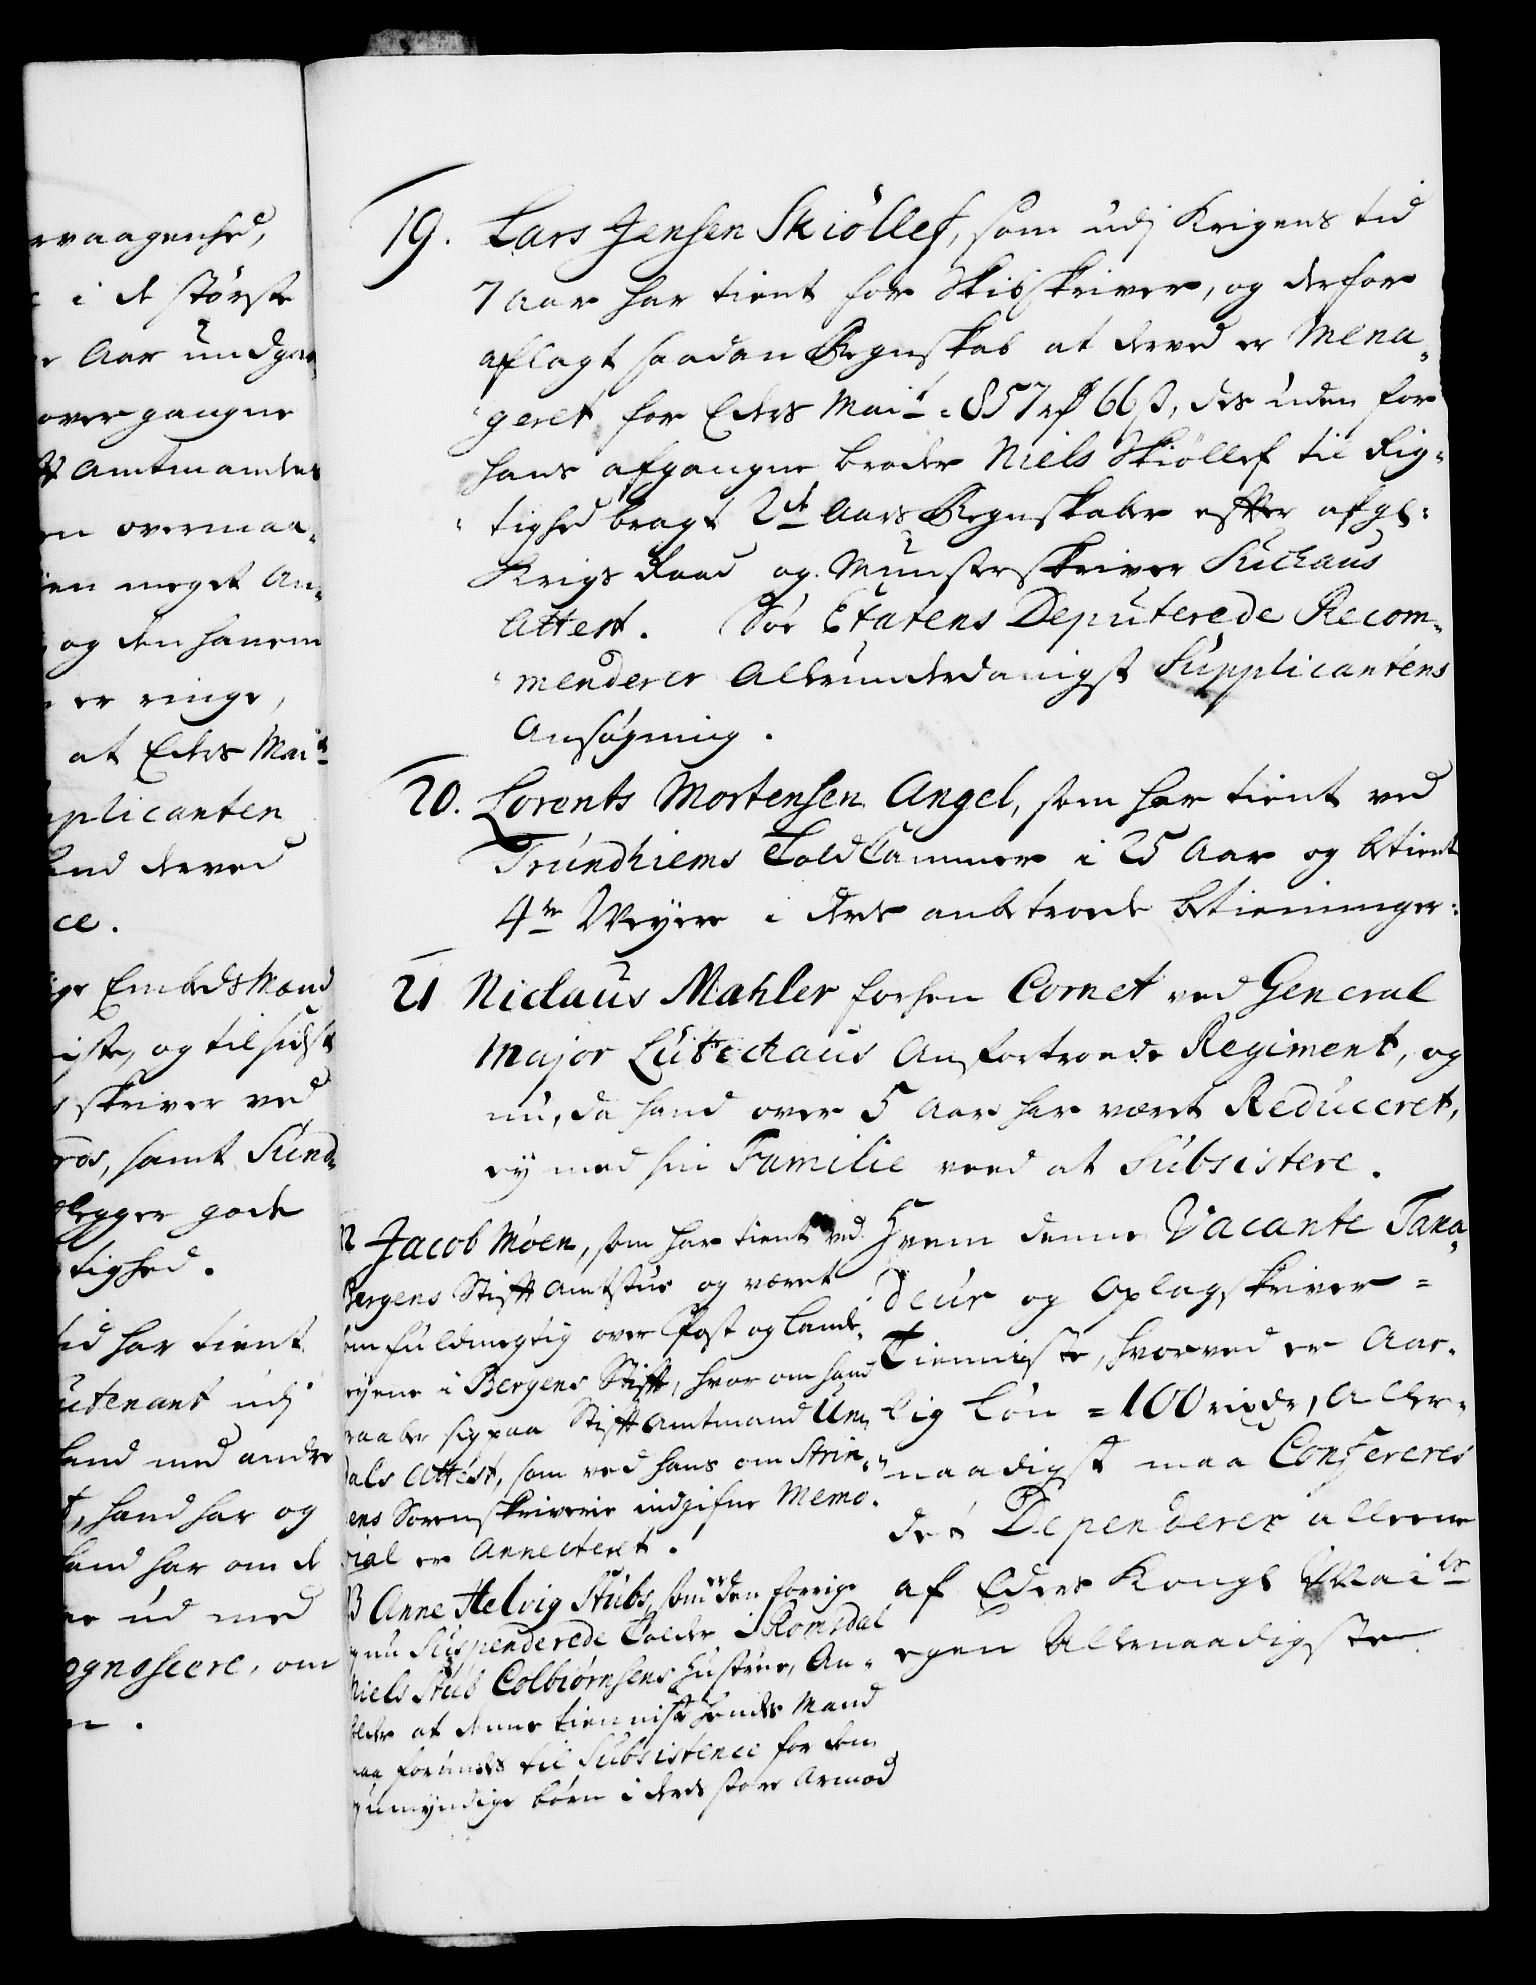 rvaagenhed,
i de störste
Aar undgaa,
overgangne
Amtmandens
en overmaa,
ien meget An,
og den hanem
er ringe,
at Eders Mait
plicanten
hand derved
ce.
ige Embeds Mænd
iste, og til sidst
skriver ved
ros, samt Sund,
legger gode
tighed.
tid har tient
utenant udj
hand med andre
t, hand har og
hand har om de
ud med
ognoscere, om
19. Lars Jensen Skiöllef, som udj Krigens tid
7 Aar har tient for Skibskriver, og derfor
aflagt saadan Regnskab at derved er Mena,
geret for Eders Mait: 857 rd 66 s, des uden for
hans afgangne broder Niels Skiöllef til Rig,
tighed bragt 2de Aars Regnskaber efter afg:
Krigs Raad og Munsterskriver Suckaus
Attest. Söe Etatens Deputerede Recom,
menderer Allerunderdanigst Supplicantens
Ansögning.
20. Lorents Mortensen Angel, som har tient ved
Trundhiems Told Cammer i 25 Aar og betient
4re Weyere i deres anbetroede betieninger.
21 Niclaus Mahler forhen Cornet ved General
Major Lützckaus Anfortroede Regiment, og
nu, da hand over 5 Aar har været Reduceret,
ey med sin Familie veed at Subsistere.
22 Jacob Möen, som har tient ved
Bergens Stift Amtstue og været
som fuldmegtig over Post og Lande,
veyene i Bergens Stift, hvor om hand
raaber sig paa Stift Amtmand Um,
dals Attest, som ved hans om Strin,
dens Sorenskriverie indgifne Memo,
rial er Annecteret.
23 Anne Helvig Stubs, som ved den forrige
nu Suspenderede Tolder i Romsdal
Niels Stub Colbiörnsens Hustrue, An,
holder at denne tienniste hendes Mand
maa forundes til Subsistence for dem
umyndige börn i deres store Armod
Hvem denne Vacante Tara,
deur og Oplagskriver
Tienniste, hvorved er Aar,
lig Lön 100 rixdr, Aller,
naadigst maa Confereres
det Dependerer alleene
af Eders Kongl Maits
egen Allernaadigste